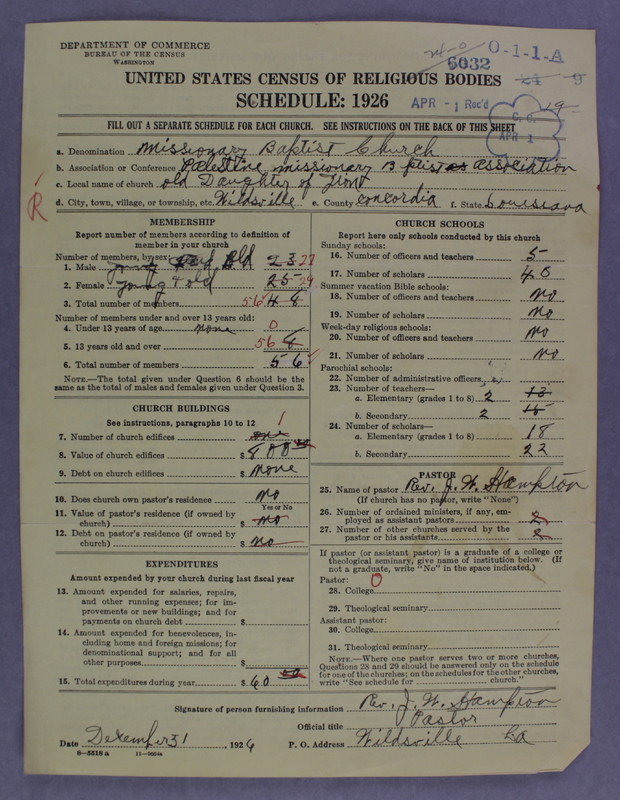 DEPARTMENT OF COMMERCE
BUREAU OF THE CENSUS
WASHINGTON
24-0 O-1-1-A
6032
24 9
UNITED STATES CENSUS OF RELIGIOUS BODIES
SCHEDULE: 1926
APR -1 Rec'd
19
C. C.
APR 1
FILL OUT A SEPARATE SCHEDULE FOR EACH CHURCH. SEE INSTRUCTIONS ON THE BACK OF THIS SHEET
a. Denomination Missionary Baptist Church
b. Association or Conference Palestine missionary Bptist as association
c. Local name of church old Daughter of Zion
d. City, town, village, or township, etc. Wildsville e. County concordia f. State Louisiana
R
MEMBERSHIP
Report number of members according to definition of
member in your church
Number of members, by sex:
1. Male young and old 23 27
2. Female young & old 25 29
3. Total number of members 56 48
Number of members under and over 13 years old:
4. Under 13 years of age none 0
5. 13 years old and over 56
6. Total number of members 56
NOTE.—The total given under Question 6 should be the
same as the total of males and females given under Question 3.
CHURCH BUILDINGS
See instructions, paragraphs 10 to 12
7. Number of church edifices one 1
8. Value of church edifices $ 400 00
9. Debt on church edifices $ none
10. Does church own pastor's residence no
Yes or No
11. Value of pastor's residence (if owned by
church) $ no
12. Debt on pastor's residence (if owned by
church) $ no
EXPENDITURES
Amount expended by your church during last fiscal year
13. Amount expended for salaries, repairs,
and other running expenses; for im-
provements or new buildings; and for
payments on church debt $
14. Amount expended for benevolences, in-
cluding home and foreign missions; for
denominational support; and for all
other purposes $
15. Total expenditures during year $ 60 00
CHURCH SCHOOLS
Report here only schools conducted by this church
Sunday schools:
16. Number of officers and teachers 5
17. Number of scholars 40
Summer vacation Bible schools:
18. Number of officers and teachers no
19. Number of scholars no
Week-day religious schools:
20. Number of officers and teachers no
21. Number of scholars no
Parochial schools:
22. Number of administrative officers
23. Number of teachers—
a. Elementary (grades 1 to 8) 2 13
b. Secondary 2 15
24. Number of scholars—
a. Elementary (grades 1 to 8) 18
b. Secondary 22
PASTOR
25. Name of pastor Rev. J. W. Hampton
(If church has no pastor, write "None")
26. Number of ordained ministers, if any, em-
ployed as assistant pastors 2
27. Number of other churches served by the
pastor or his assistants 2
If pastor (or assistant pastor) is a graduate of a college or
theological seminary, give name of institution below. (If
not a graduate, write "No" in the space indicated.)
Pastor: 0
28. College
29. Theological seminary
Assistant pastor:
30. College
31. Theological seminary
NOTE.—Where one pastor serves two or more churches,
Questions 28 and 29 should be answered only on the schedule
for one of the churches; on the schedules for the other churches,
write "See schedule for church."
Signature of person furnishing information Rev. J. W. Hampton
Official title Pastor
Date Dexember 31, 1926 P. O. Address Wildsville La
8—5518 a